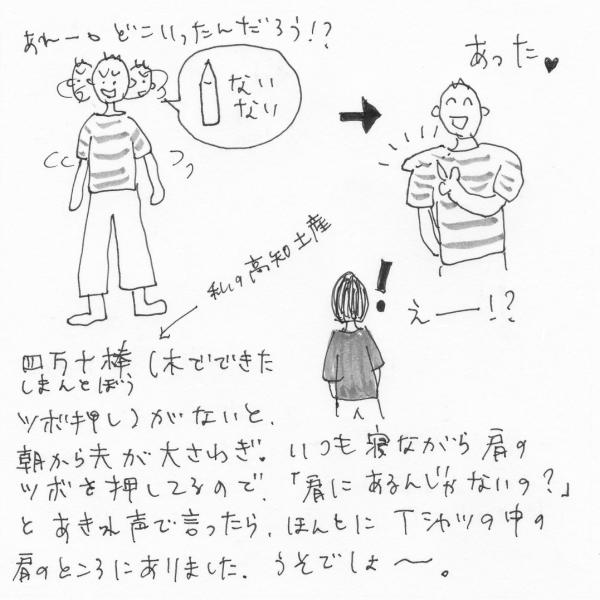 あれー。どこいったんだろう!?
ない
ない
あった♥
えー!?
私の高知土産
四万十棒(木でできた
しまんとぼう
ツボ押し)がないと、
朝から夫が大さわぎ。いつも寝ながら肩の
ツボを押してるので、「肩にあるんじゃないの?」
とあきれ声で言ったら、ほんとにTシャツの中の
肩のところにありました。うそでしょ〜。